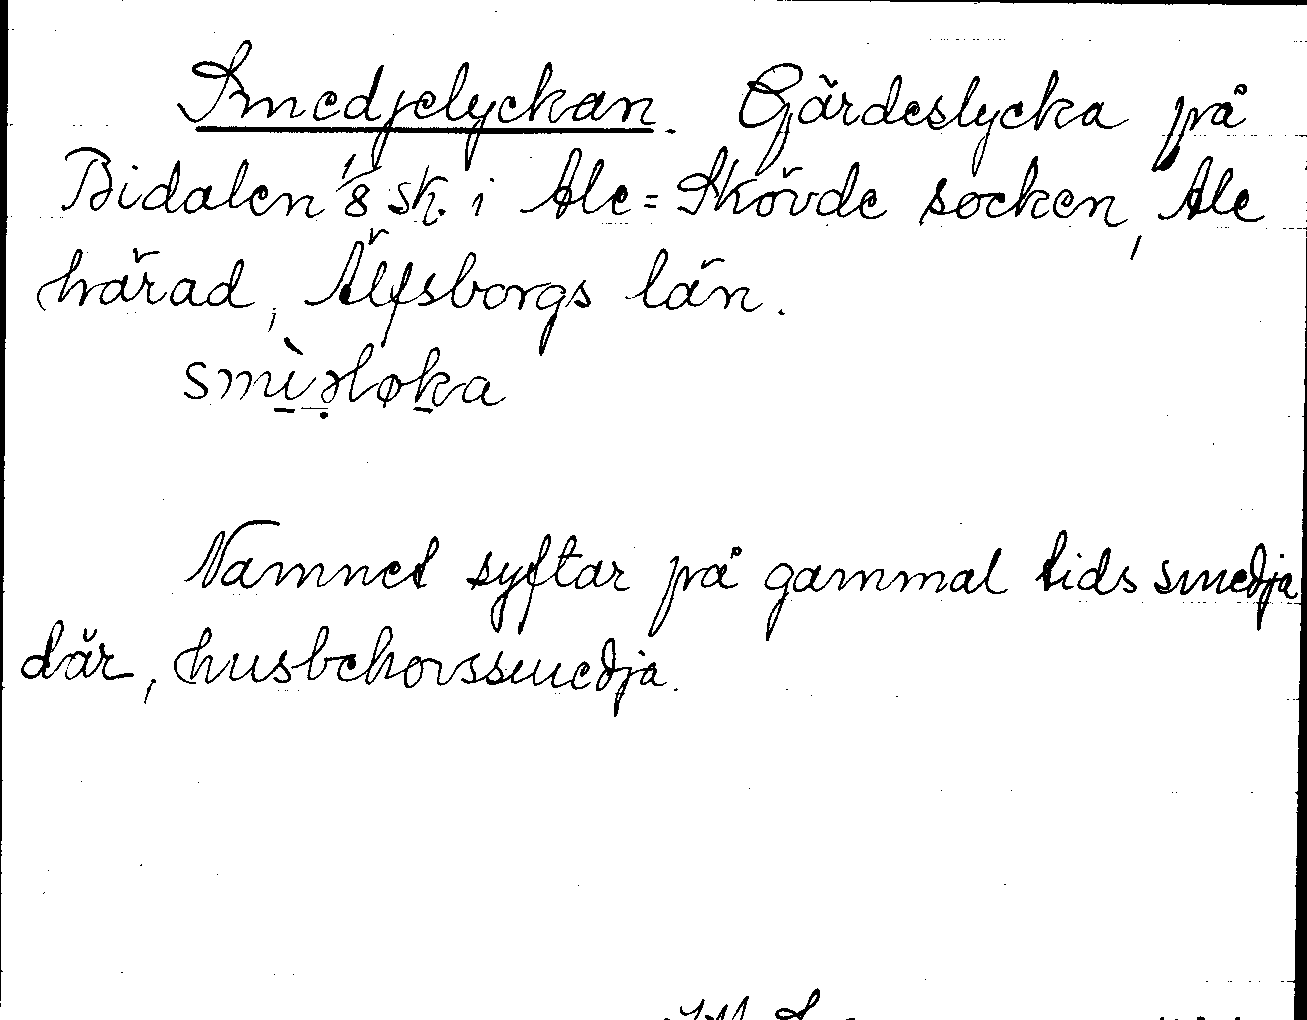 Smedjelyckan. Gjärdeslycka på
Bidalen 1/8 sk. i Ale=Skövde socken, Ale
härad, Älfsborgs län.
smì̱ə̣lǫḵa
Namnet syftar på gammal tids smedja
där, husbehovssmedja.